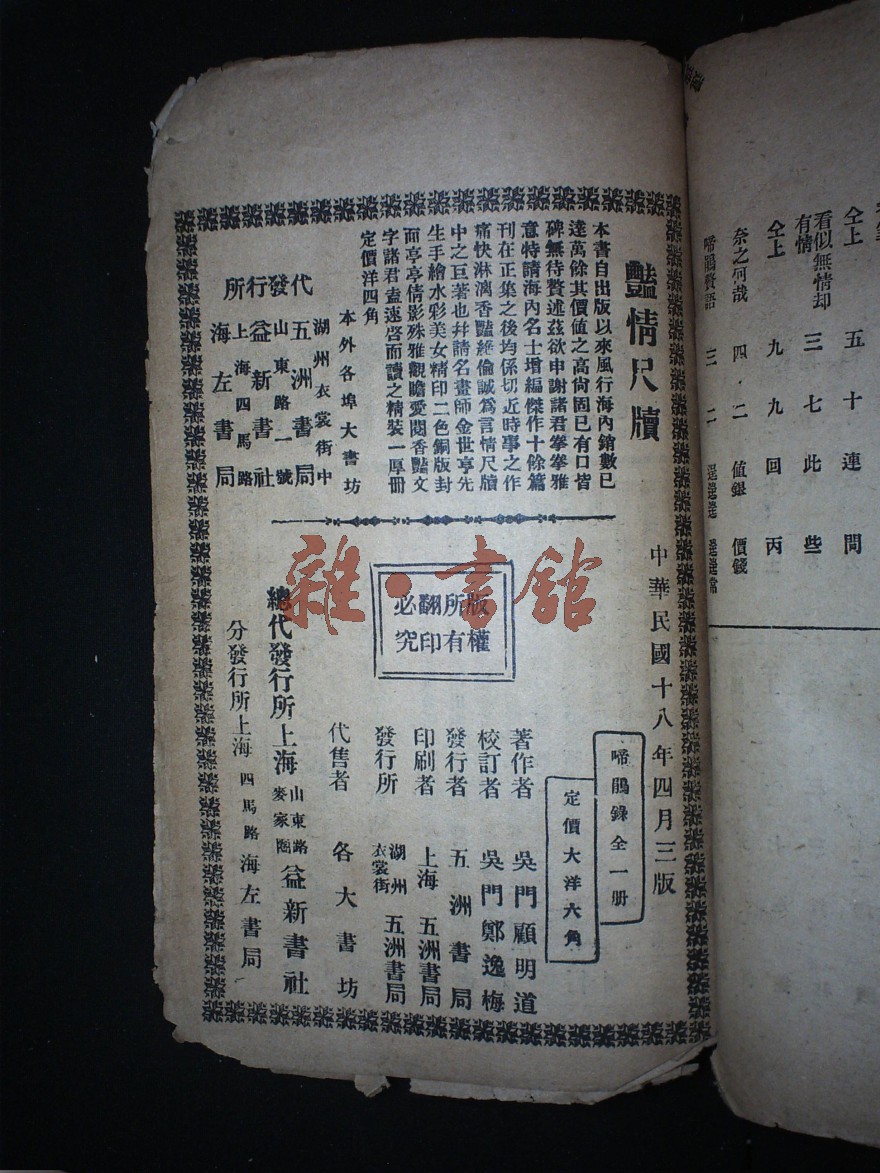 仝上 五十連 間
看似無情却有情 三七 此 些
仝上 九九 回 丙
奈之何哉 四·二 值銀 價錢
啼鵑贅語 三二
豔情尺牘
本書自出版以來風行海內銷數已
達萬餘其價值之高尙固已有口皆
碑無待贅述茲欲申謝諸君拳拳雅
意特請海內名士增編傑作十餘篇
刊在正集之後均係切近時事之作
痛快淋漓香豔絕倫誠爲言情尺牘
中之巨著也幷請名畫師金世亨先
生手繪水彩美女精印二色銅版封
面亭亭倩影殊雅觀瞻愛閱香豔文
字諸君盍速啓而讀之精裝一厚冊
定價洋四角
本外各埠大書坊
代發行所
湖州衣裳街中
五洲書局
山東路一號
益新書社
上海四馬路
海左書局
中華民國十八年四月三版
啼鵑錄全一册
定價大洋六角
版權
所有
翻印
必究
著作者 吳門顧明道
校訂者 吳門鄭逸梅
發行者 五洲書局
印刷者 上海五洲書局
發行所 湖州衣裳街 五洲書局
代售者 各大書坊
總代發行所上海 山東路麥家圈 益新書社
分發行所上海 四馬路 海左書局
雜·書舘